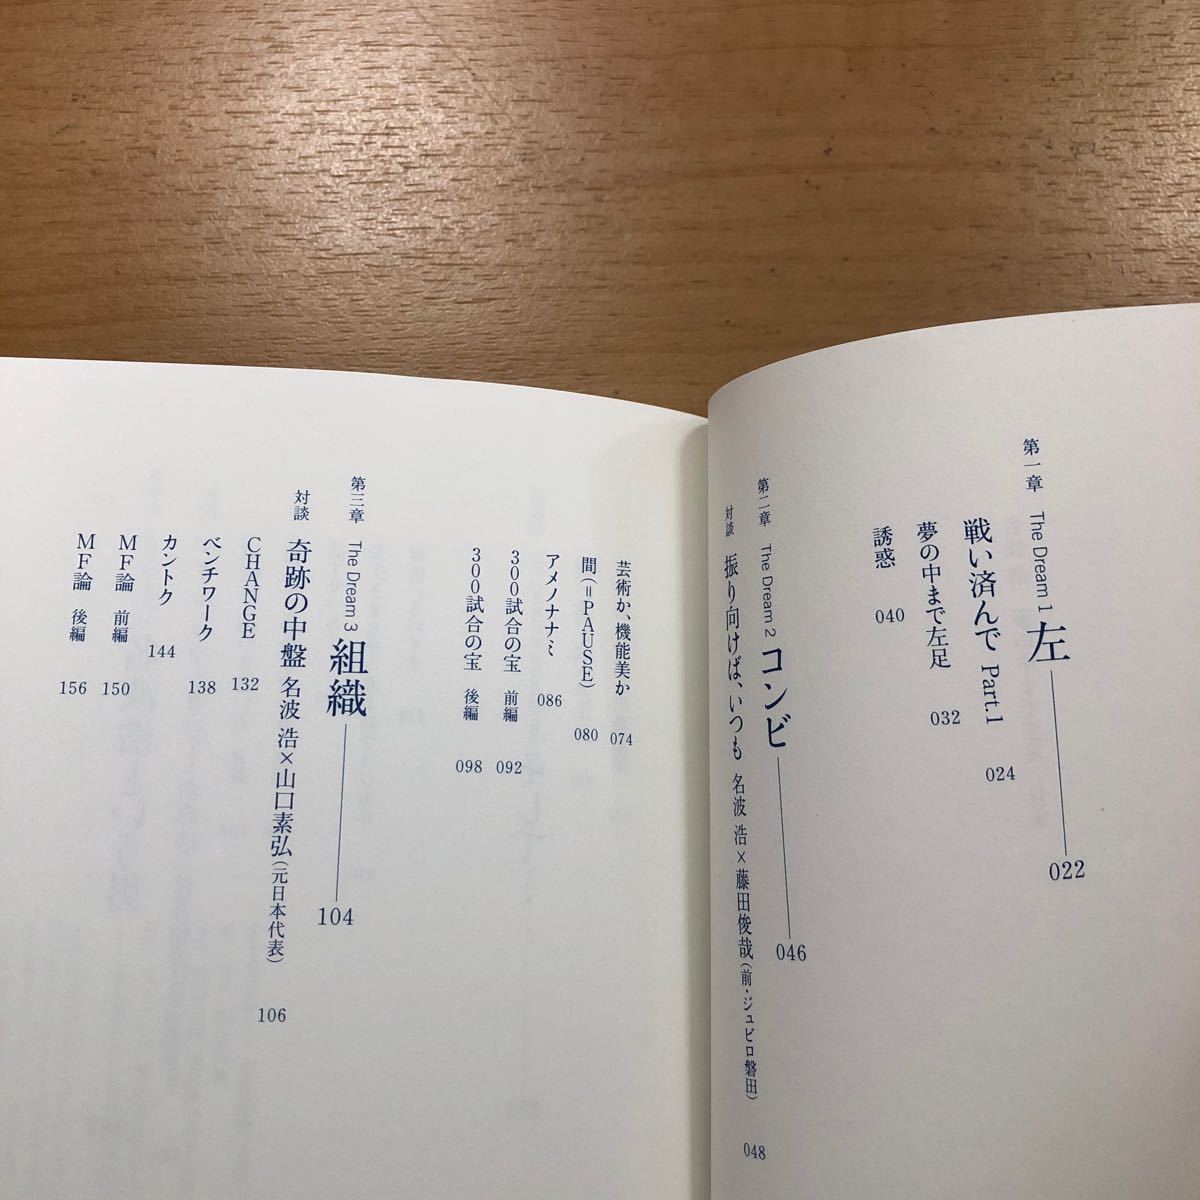 第一章 The Dream 1 左 022
戦い済んで Part.1 024
夢の中まで左足 032
誘惑 040
第二章 The Dream 2 コンビ 046
対談 振り向けば、いつも 名波 浩×藤田俊哉(前・ジュビロ磐田) 048
芸術か、機能美か 074
間(=PAUSE) 080
アメノナナミ 086
300試合の宝 前編 092
300試合の宝 後編 098
第三章 The Dream 3 組織 104
対談 奇跡の中盤 名波 浩×山口素弘(元日本代表) 106
CHANGE 132
ベンチワーク 138
カントク 144
MF論 前編 150
MF論 後編 156